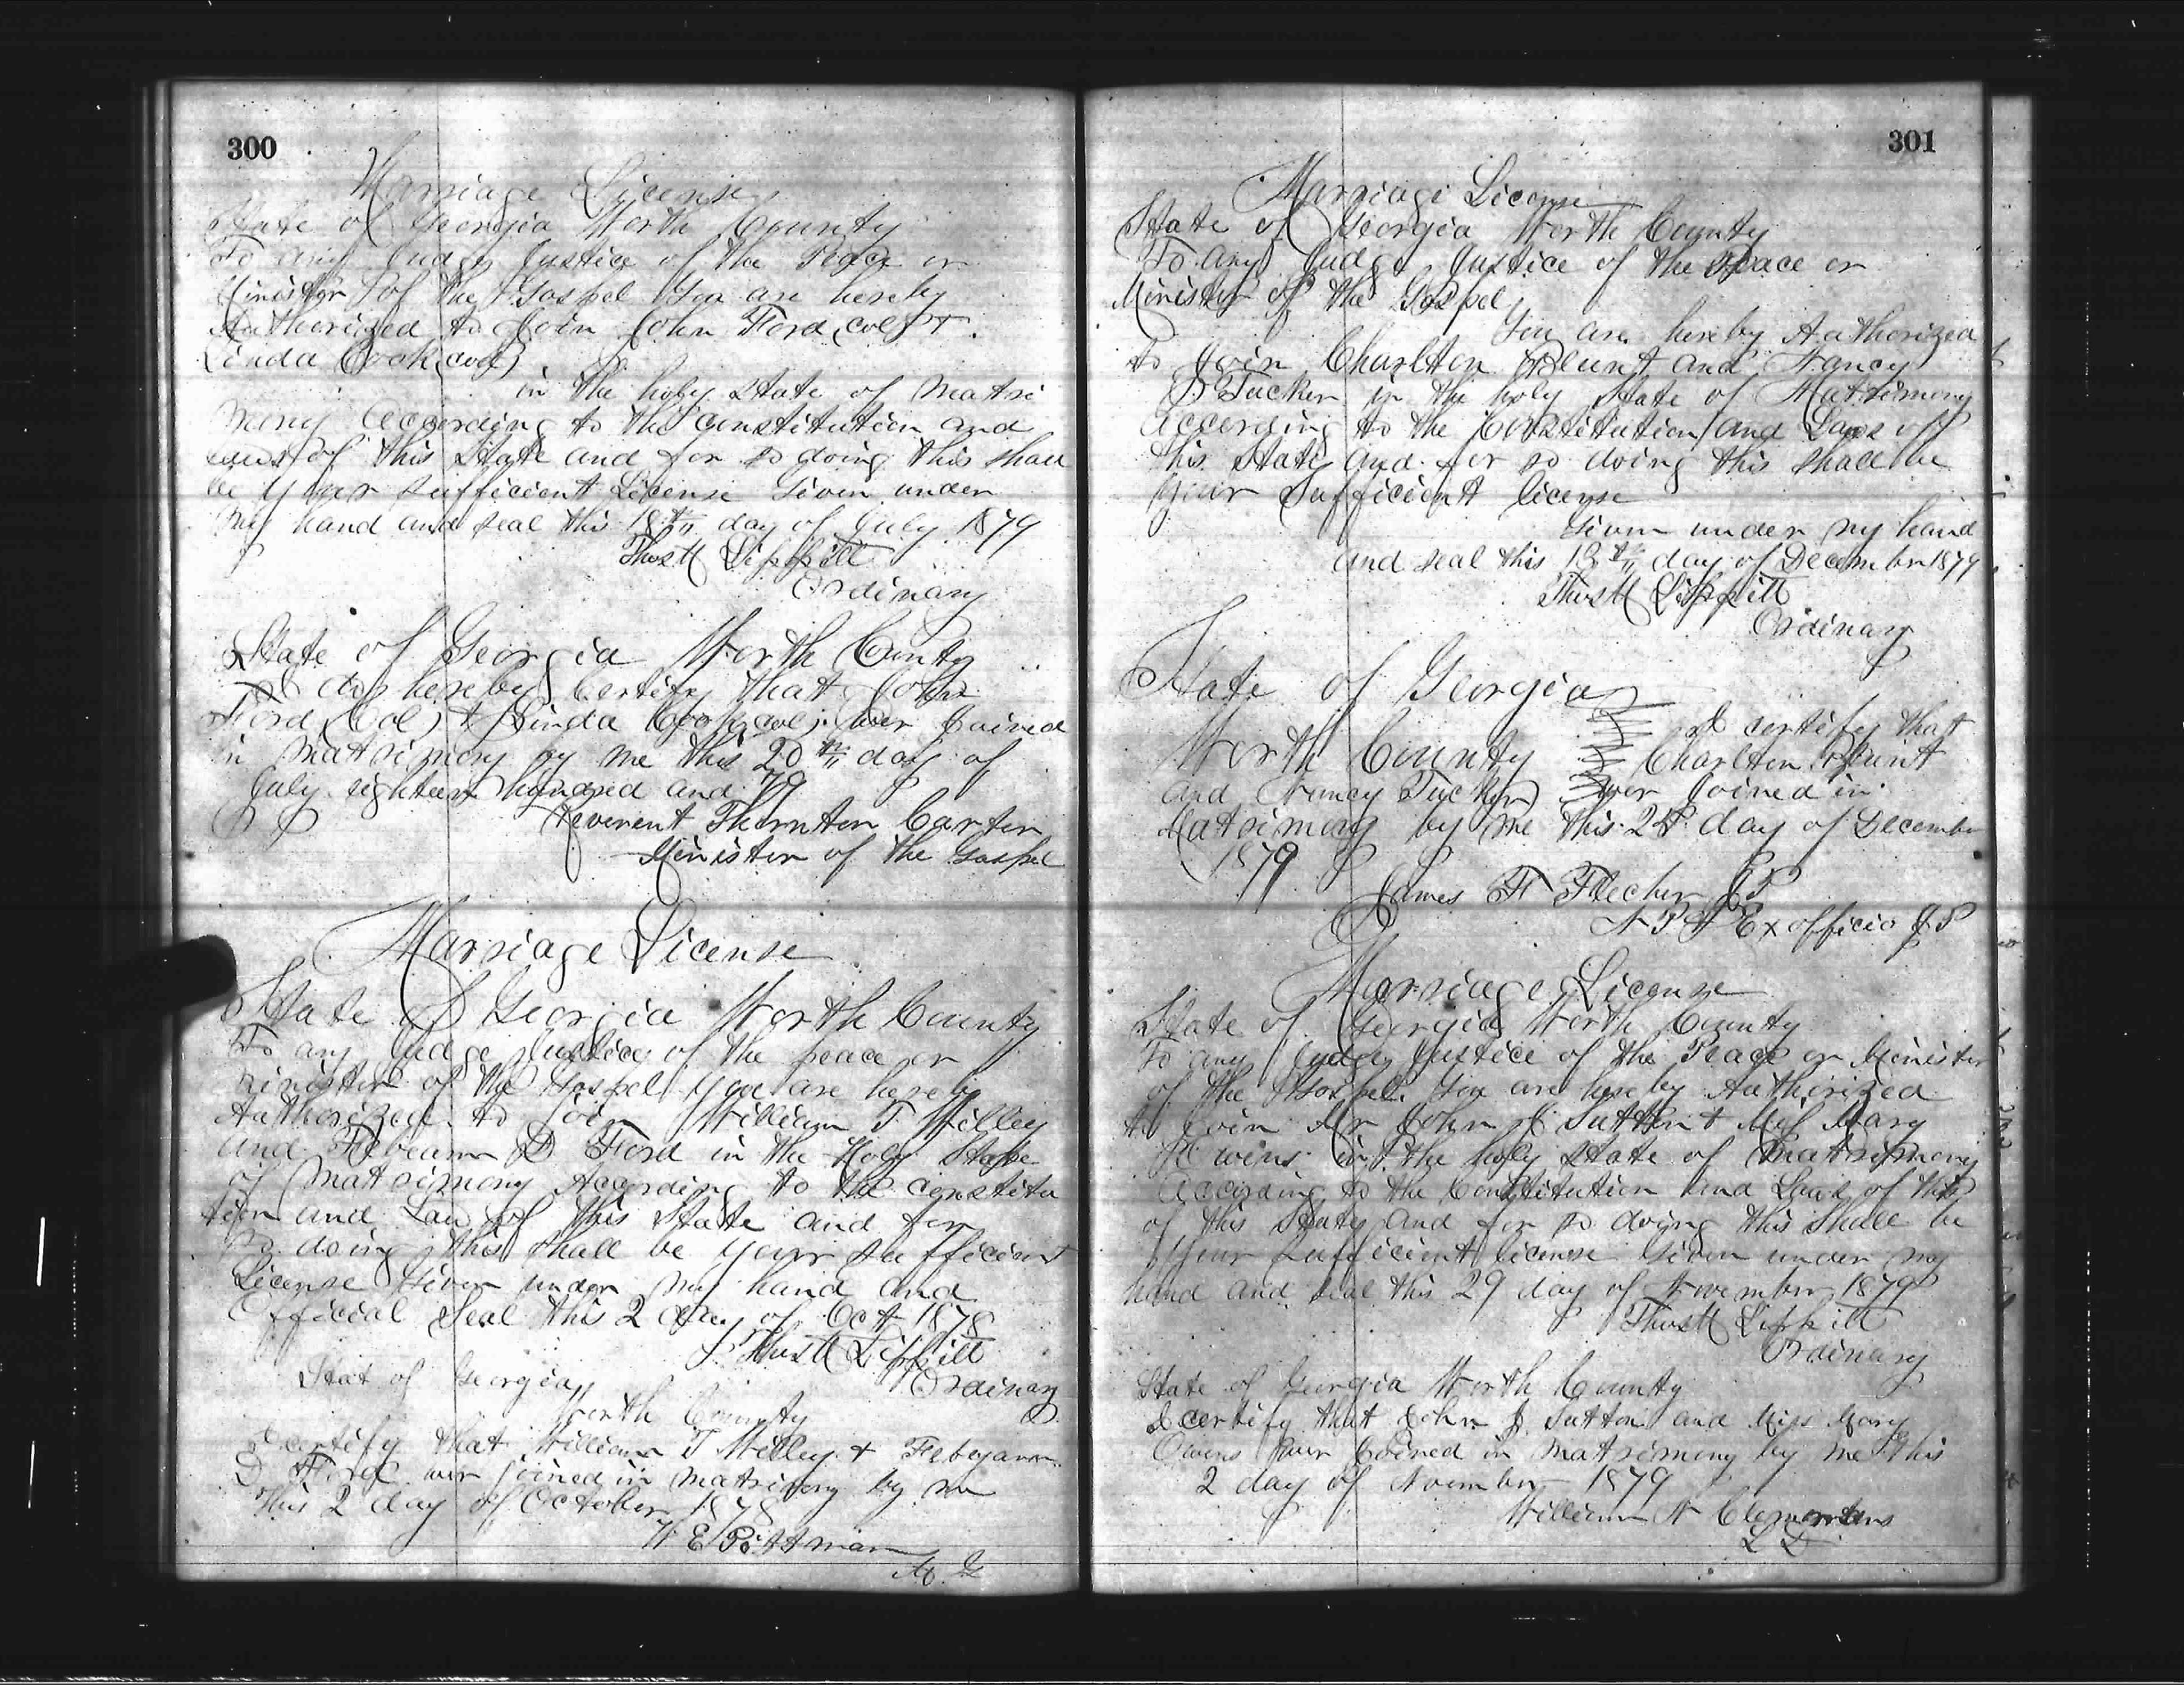 300
Marriage License
State of Georgia Worth County
To any Judge Justice of the Peace or
Minister of the Gospel You are hereby
Authorized to Join John Ford, col, &
Linda Cook, col,
in the holy State of matri
mony According to the constitution and
Laws of this State and for so doing this shall
be your sufficient License Given under
my hand and seal this 18th day of July 1879
Thos H Lippitt
Ordinary
State of Georgia Worth County
I do hereby Certify that John
Ford, Col, & Linda Cook, col, wer Joined
in matrimony by me this 20th day of
July eighteen hundred and 79
Reverent Thornton Carter
Minister of the Gospel
Marriage License
State of Georgia Worth County
To any Judge Justice of the peace or
Minister of the Gospel You are hereby
Authorized to Join William T Willey
and D Ford in the Holy State
of Matrimony According to the constitu
tion and Law of this State and for
so doing this shall be your sufficient
License Given under my hand and
Official Seal this 2 day of Oct 1878
Thos H Lippitt
Ordinary
Stat of Georgia
Worth County
I certify that William T Willey &
D Ford wer joined in matrimony by me
this 2 day of October 1878
W E Pittman
M. G
301
Marriage License
State of Georgia Worth County
To any Judge Justice of the Peace or
Minister of the Gospel
You are hereby Authorized
to Join Charlton Blunt and Nancy
Tucker in the holy State of Matrimony
According to the Constitution and Laws of
this State and for so doing this shall be
your Sufficient license
Given under my hand
and seal this 18th day of December 1879
Thos H Lippitt
Ordinary
State of Georgia
I certify that
Worth County Charlton Blunt
and Nancy Tucker wer Joined in
Matrimony by me this day of December
1879
James F Flecher JP
N P & Ex officio J P
Marriage License
State of Georgia Worth County
To any Judge Justice of the Peace or Minister
of the Gospel. You are hereby Authorized
to Join Mr John J Sutton & Miss Mary
Owins in the holy State of Matrimony
According to the Constitution and Laws of this
of this State and for so doing this Shall be
Your Sufficient license Given under my
hand and seal this 29 day of November 1879
Thos H Lippitt
Ordinary
State of Georgia Worth County
I certify that John J Sutton and Miss Mary
Owins wer Joined in Matrimony by me this
2 day of November 1879
William N